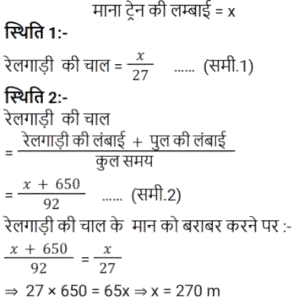 माना ट्रेन की लम्बाई = x
स्थिति 1:-
रेलगाड़ी की चाल = x/27 ...... (समी.1)
स्थिति 2:-
रेलगाड़ी की चाल
= रेलगाड़ी की लंबाई + पुल की लंबाई / कुल समय
= x + 650 / 92 ...... (समी.2)
रेलगाड़ी की चाल के मान को बराबर करने पर :-
x + 650 / 92 = x / 27
⇒ 27 × 650 = 65x ⇒ x = 270 m